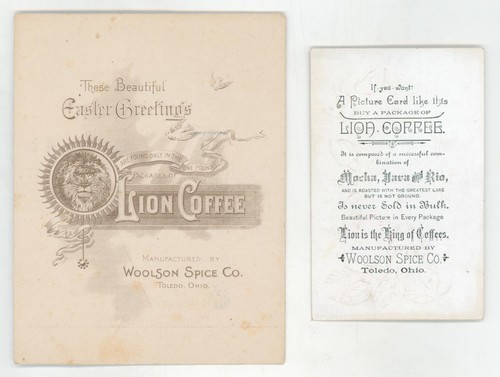 These Beautiful
Easter Greetings
FOUND ONLY IN THE
PACKAGES OF
LION COFFEE
MANUFACTURED BY
WOOLSON SPICE CO.
TOLEDO, OHIO.
If you want
A Picture Card like this
BUY A PACKAGE OF
LION COFFEE.
It is composed of a successful com-
bination of
Mocha, Java and Rio,
AND IS ROASTED WITH THE GREATEST CARE
BUT IS NOT GROUND.
Is never Sold in Bulk.
Beautiful Picture in Every Package
Lion is the King of Coffees.
MANUFACTURED BY
WOOLSON SPICE CO.
Toledo, Ohio.